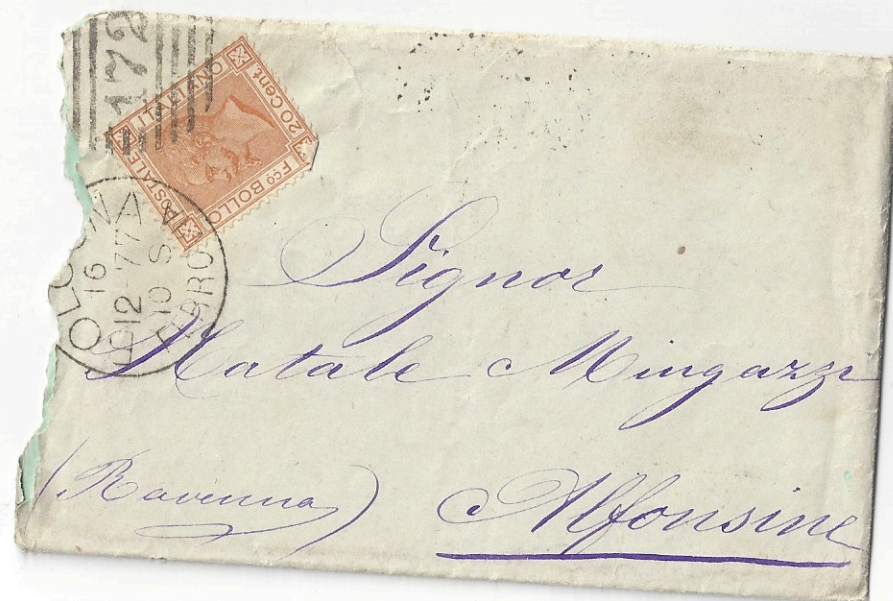 172
POSTALE ITALIANO
20 Cent
Fco BOLLO
OLOGNA
16
12-77
10 S
FERROVIA
Signor
Natale Mingazzi
(Ravenna)
Alfonsine